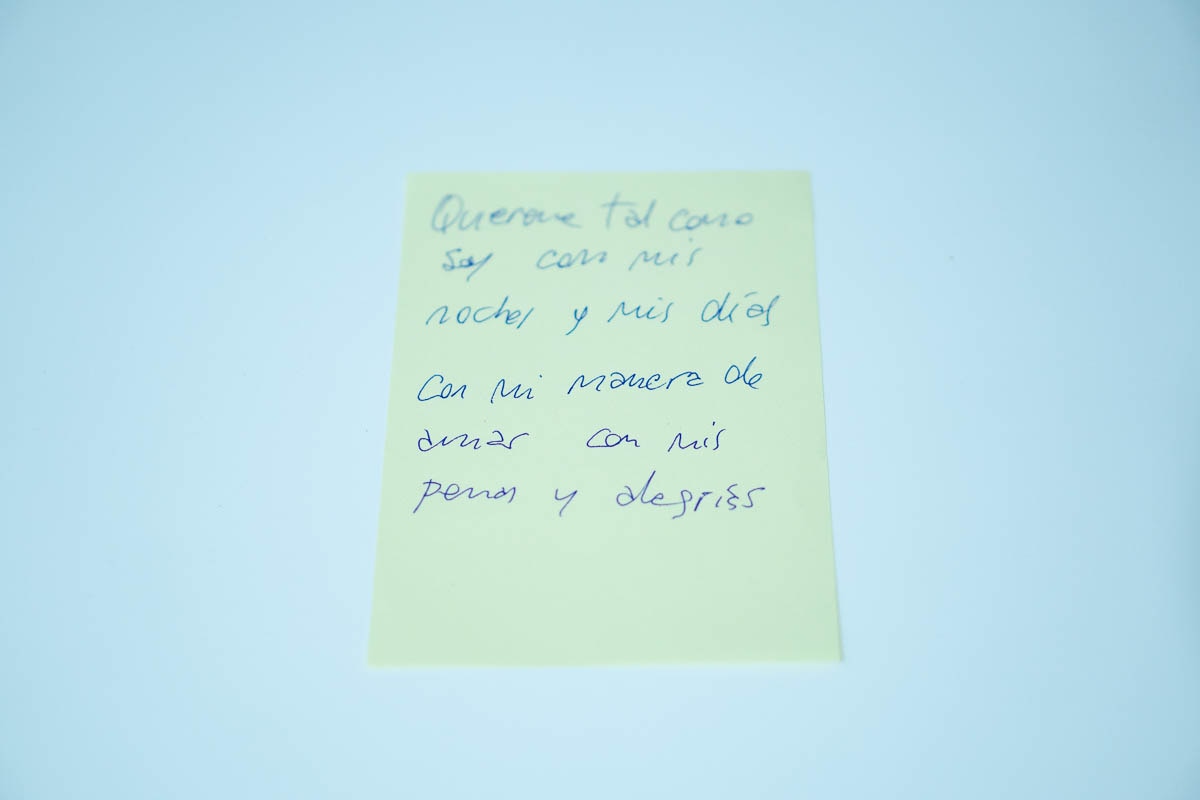 Quereme tal como
soy con mis
noches y mis días
Con mi manera de
amar con mis
penas y alegrías